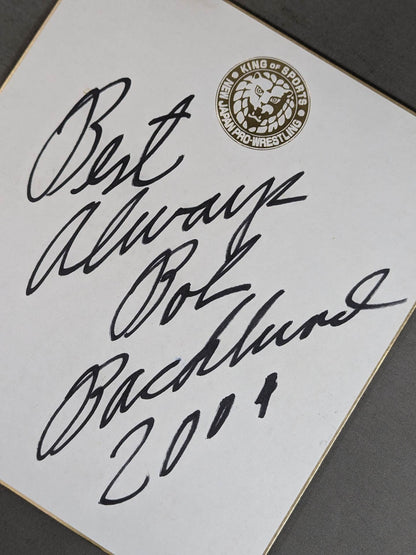 KING OF SPORTS
NEW JAPAN PRO-WRESTLING
Best
Always
Bob
Backlund